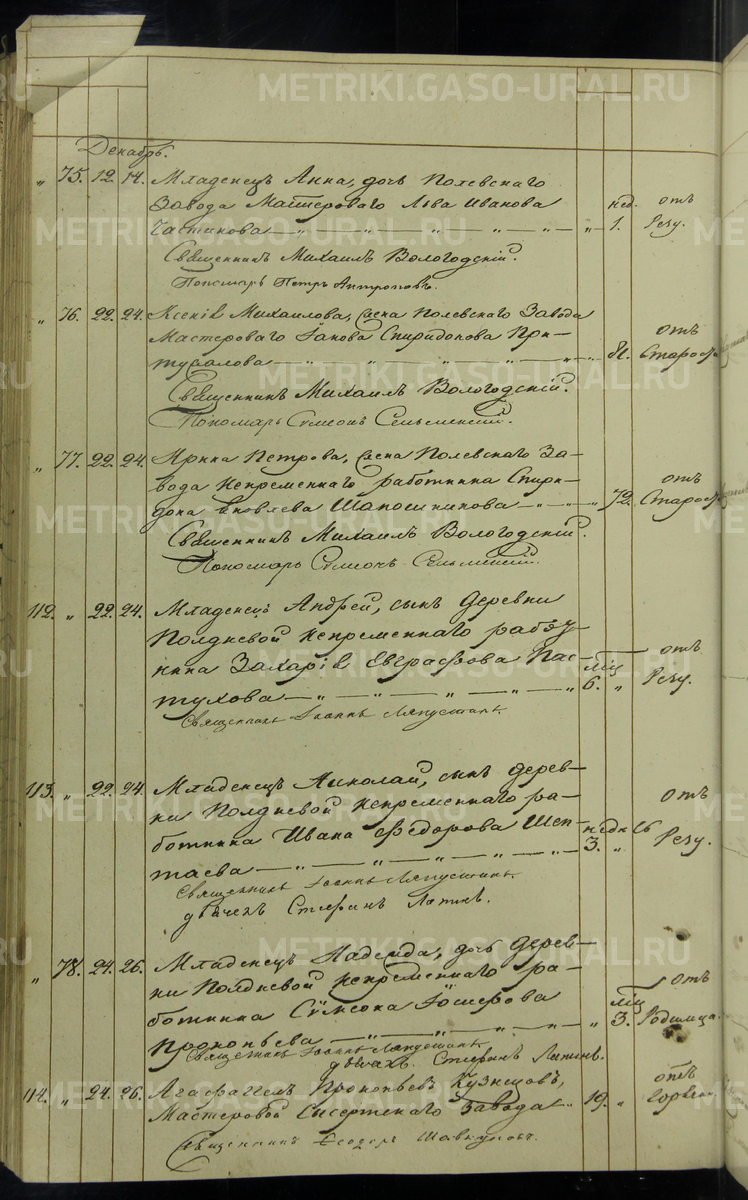 METRIKI.GASO-URAL.RU
Декабрь.
" 75. 12. 14. Младенецъ Анна, дочь Полевскаго
Завода Мастероваго Льва Иванова нед. отъ
Частикова — " — " — " — " — " 1. Резу.
Священникъ Михаилъ Вологодскій.
Пономарь Петръ Антроповъ.
" 76. 22. 24. Ксенія Михаилова, жена Полевскаго Завода
Мастероваго Іакова Спиридонова При- отъ
тузалова — " — " — " — " — " 81. Старос
Священникъ Михаилъ Вологодскій.
Пономарь Сѵмеонъ Сельменскій.
" 77. 22. 24. Ирина Петрова, жена Полевскаго За- отъ
вода непременнаго работника Спири-
дона Яковлева Шапошникова — " — " 72. Старос
Священникъ Михаилъ Вологодскій.
Пономарь Сѵмеонъ Сельменскій.
112. " 22. 24. Младенецъ Андрей, сынъ деревни
Полдневой непременнаго работ- отъ
ника Захарія Евграфова Пас- мц
тухова — " — " — " — " — " 6. " Резу.
Священникъ Іоаннъ Ляпустинъ.
113. " 22. 24. Младенецъ Николай, сынъ дерев- отъ
ни Полдневой непременнаго ра-
ботника Ивана Федорова Шеп- недел
таева — " — " — " — " — 3. " Резу.
Священникъ Іоаннъ Ляпустинъ.
дьячекъ Стефанъ Лапинъ.
" 78. 24. 26. Младенецъ Надежда, дочь дерев-
ни Полдневой непременнаго ра- отъ
ботника Сѵмеона мц
Прокопьева — " — " — " — " 3. Родимца.
Священникъ Іоаннъ Ляпустинъ.
дьячекъ Стефанъ Лапинъ.
114. " 24. 26. Агафангелъ Прокопьевъ Кузнецовъ, отъ
Мастеровой Сысертскаго Завода " 19. " горяч
Священникъ Ѳеодоръ